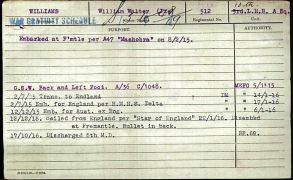 WILLIAMS William Walter (Pte) 512 10th
WAR GRATUITY SCHEDULE Regimental No. 3rd.L.H.R. A Sq.
PURPOSE AUTHORITY.
Embarked at F'mtle per A47 "Mashobra" on 8/2/15.
G.S.W. Back and Left Foot. A/36 C/1048. MKFO 5/1*15
2/7/15 Trans. to England TM " 14/1-16
2/7/15 Emb. for England per H.M.H.S. Delta " 17/1-16
12/12/15 Emb. for Aust. ex Eng. " 6/1-16
Sailed from England per "Star of England" 22/1/16. Disembd
at Fremantle. Bullet in back.
17/10/16. Discharged 5th M.D. RR.69.